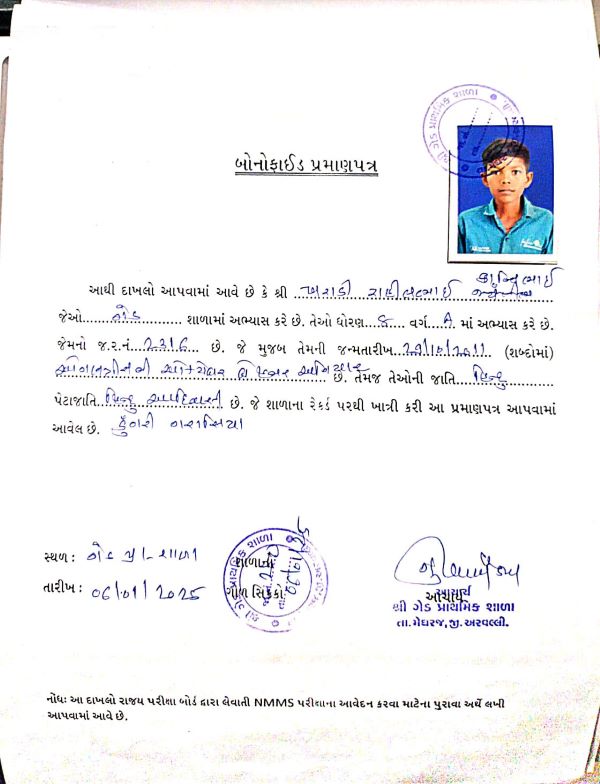 શ્રી ગેડ પ્રાથમિક શાળા
બોનોફાઈડ પ્રમાણપત્ર
કાન્તિભાઈ
આથી દાખલો આપવામાં આવે છે કે શ્રી ખરાડી
જેઓ ગેડ શાળામાં અભ્યાસ કરે છે. તેઓ ધોરણ ૮ વર્ગ A માં અભ્યાસ કરે છે.
જેમનો જ.ર.નં. 2316 છે. જે મુજબ તેમની જન્મતારીખ 29/10/2011 (શબ્દોમાં)
ઓગણત્રીસની ઓક્ટોબર બે હજાર અગિયાર છે. તેમજ તેઓની જાતિ હિન્દુ
પેટાજાતિ હિન્દુ આદિવાસી છે. જે શાળાના રેકર્ડ પરથી ખાત્રી કરી આ પ્રમાણપત્ર આપવામાં
આવેલ છે. ડુંગરી ગરાસિયા
સ્થળ: ગેડ પ્રા. શાળા
શાળાનો
તારીખ: 06/01/2025
ગોળ સિક્કો
આચાર્ય
આચાર્ય
શ્રી ગેડ પ્રાથમિક શાળા
તા.મેઘરજ, જી. અરવલ્લી.
નોંધ: આ દાખલો રાજય પરીક્ષા બોર્ડ દ્વારા લેવાતી NMMS પરીક્ષાના આવેદન કરવા માટેના પુરાવા અર્થે લખી
આપવામાં આવે છે.